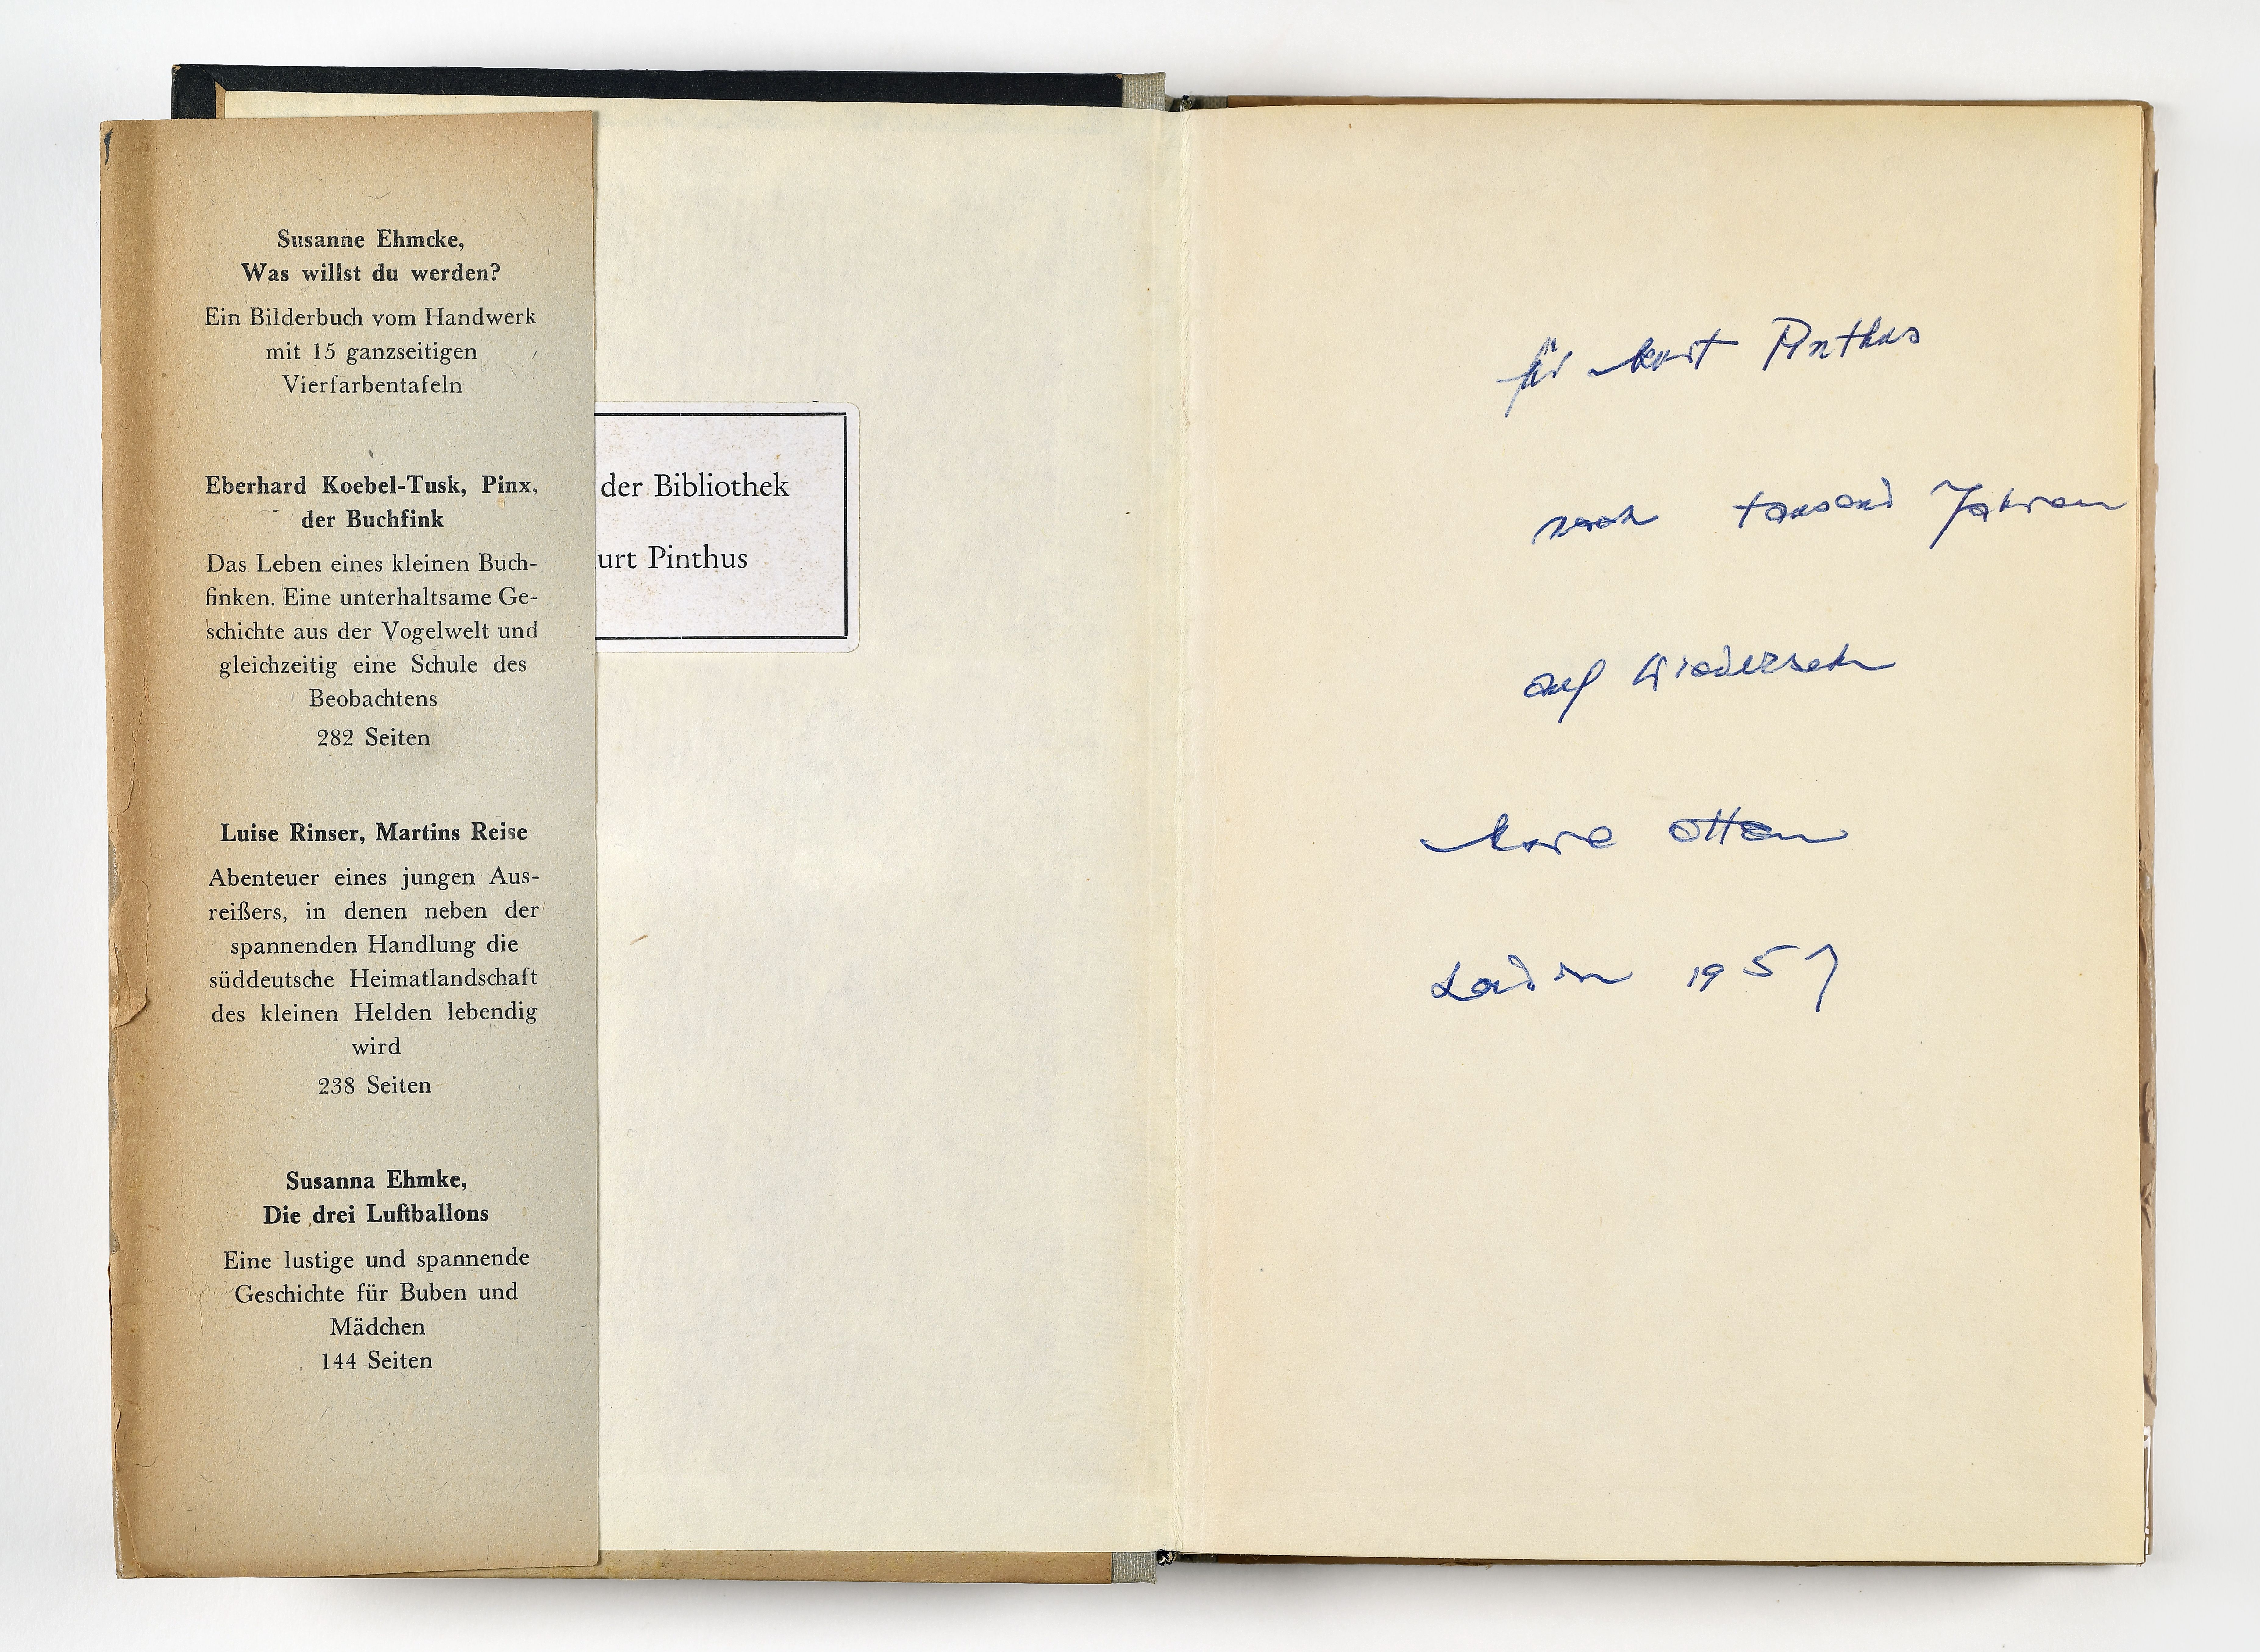 Susanne Ehmcke,
Was willst du werden?
Ein Bilderbuch vom Handwerk
mit 15 ganzseitigen
Vierfarbentafeln
Eberhard Koebel-Tusk, Pinx,
der Buchfink
Das Leben eines kleinen Buch-
finken. Eine unterhaltsame Ge-
schichte aus der Vogelwelt und
gleichzeitig eine Schule des
Beobachtens
282 Seiten
Luise Rinser, Martins Reise
Abenteuer eines jungen Aus-
reißers, in denen neben der
spannenden Handlung die
süddeutsche Heimatlandschaft
des kleinen Helden lebendig
wird
238 Seiten
Susanna Ehmke,
Die drei Luftballons
Eine lustige und spannende
Geschichte für Buben und
Mädchen
144 Seiten
der Bibliothek
urt Pinthus
für Kurt Pinthus
nach tausend Jahren
auf Wiedersehn
Karl Otten
London 1957